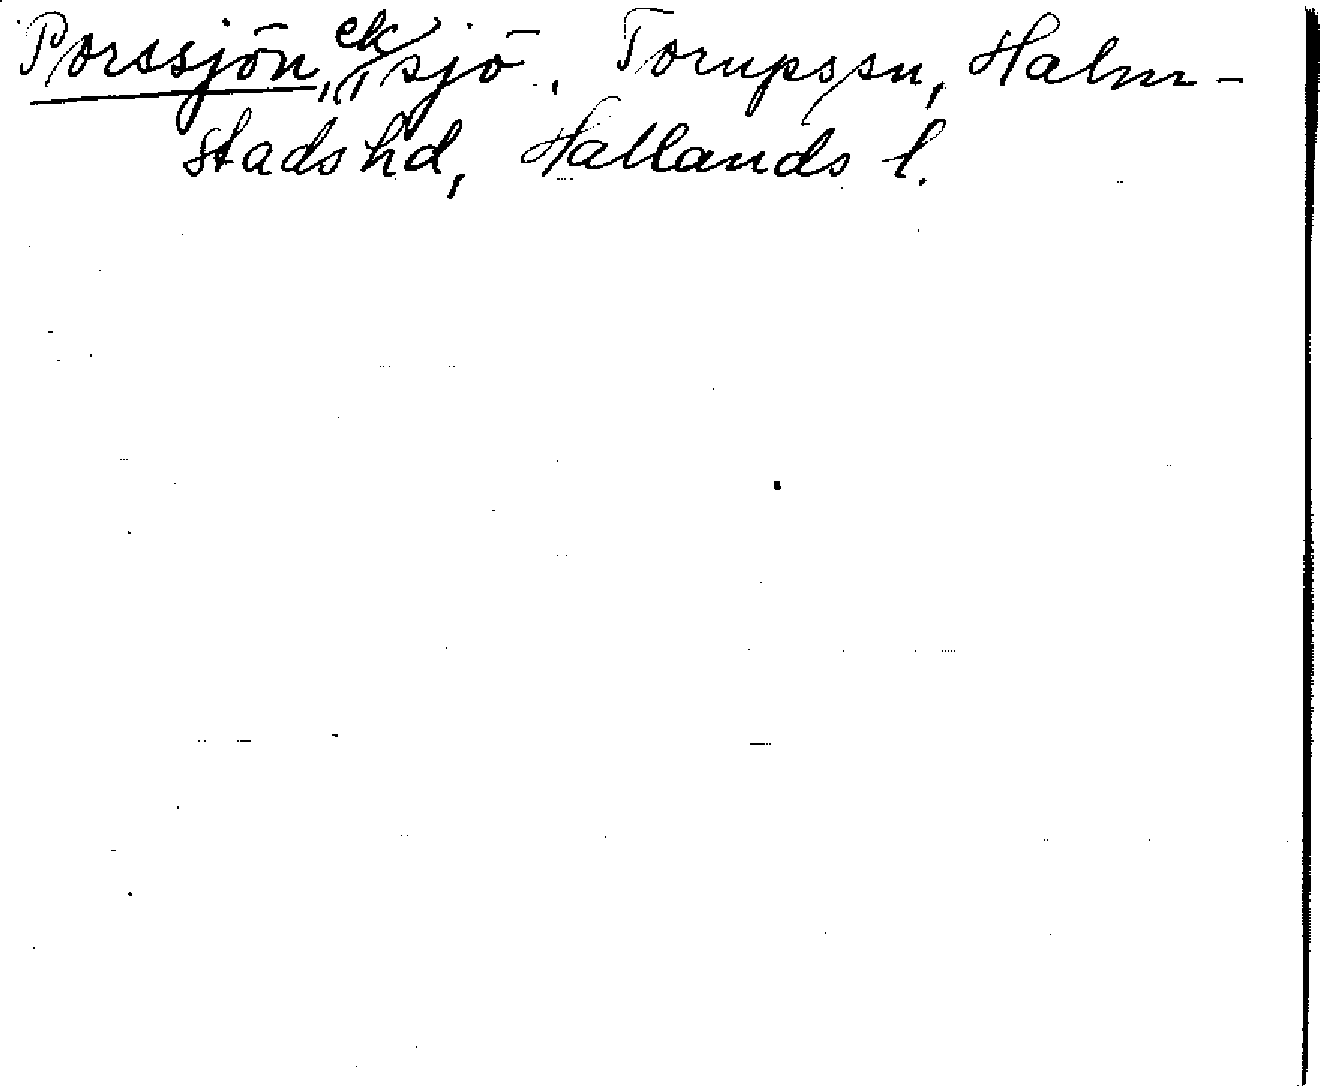 Porssjön, ek sjö. Torups sn, Halm-
stads hd, Hallands l.